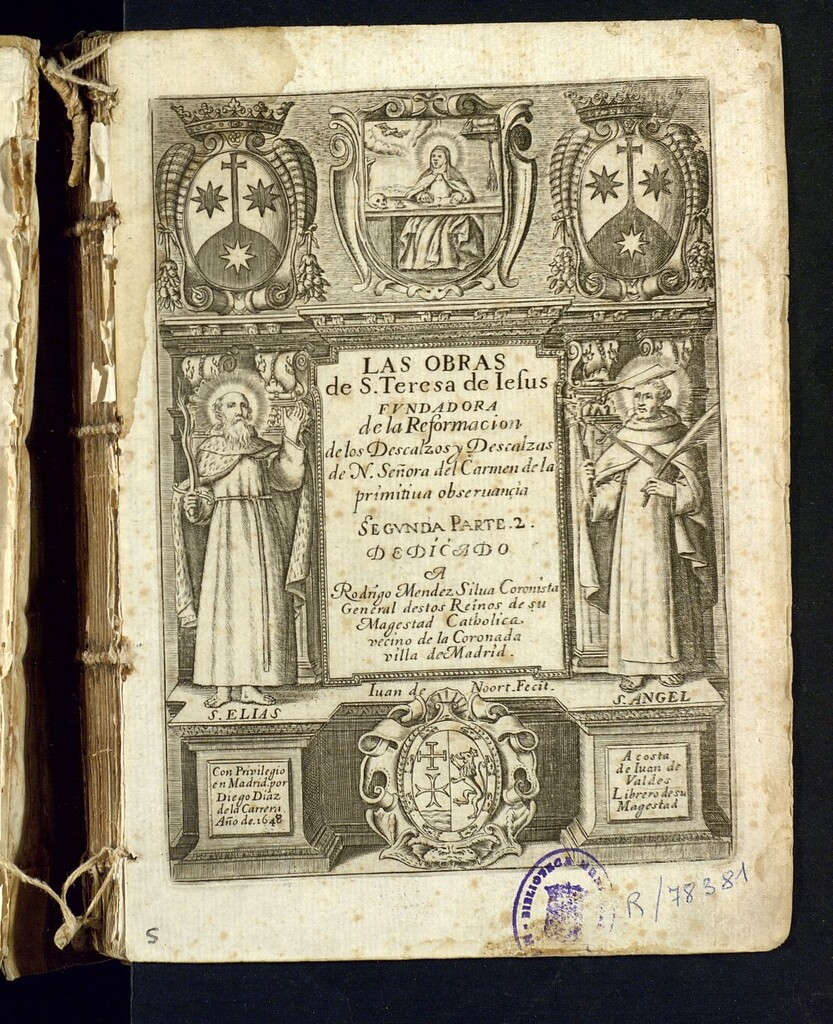 LAS OBRAS
de S. Teresa de Iesus
FVNDADORA
de la Reformacion
de los Descalzos y Descalzas
de N. Señora del Carmen de la
primitiua obseruancia
SEGVNDA PARTE. 2.
DEDICADO
A
Rodrigo Mendez Silua Coronista
General destos Reinos de su
Magestad Catholica
vecino de la Coronada
villa de Madrid.
Iuan de Noort. Fecit.
S. ELIAS
S. ANGEL
Con Privilegio
en Madrid por
Diego Diaz
de la Carrera
Año de. 1648
A costa
de Iuan de
Valdes
Librero de su
Magestad
BIBLIOTECA
R/78381
S